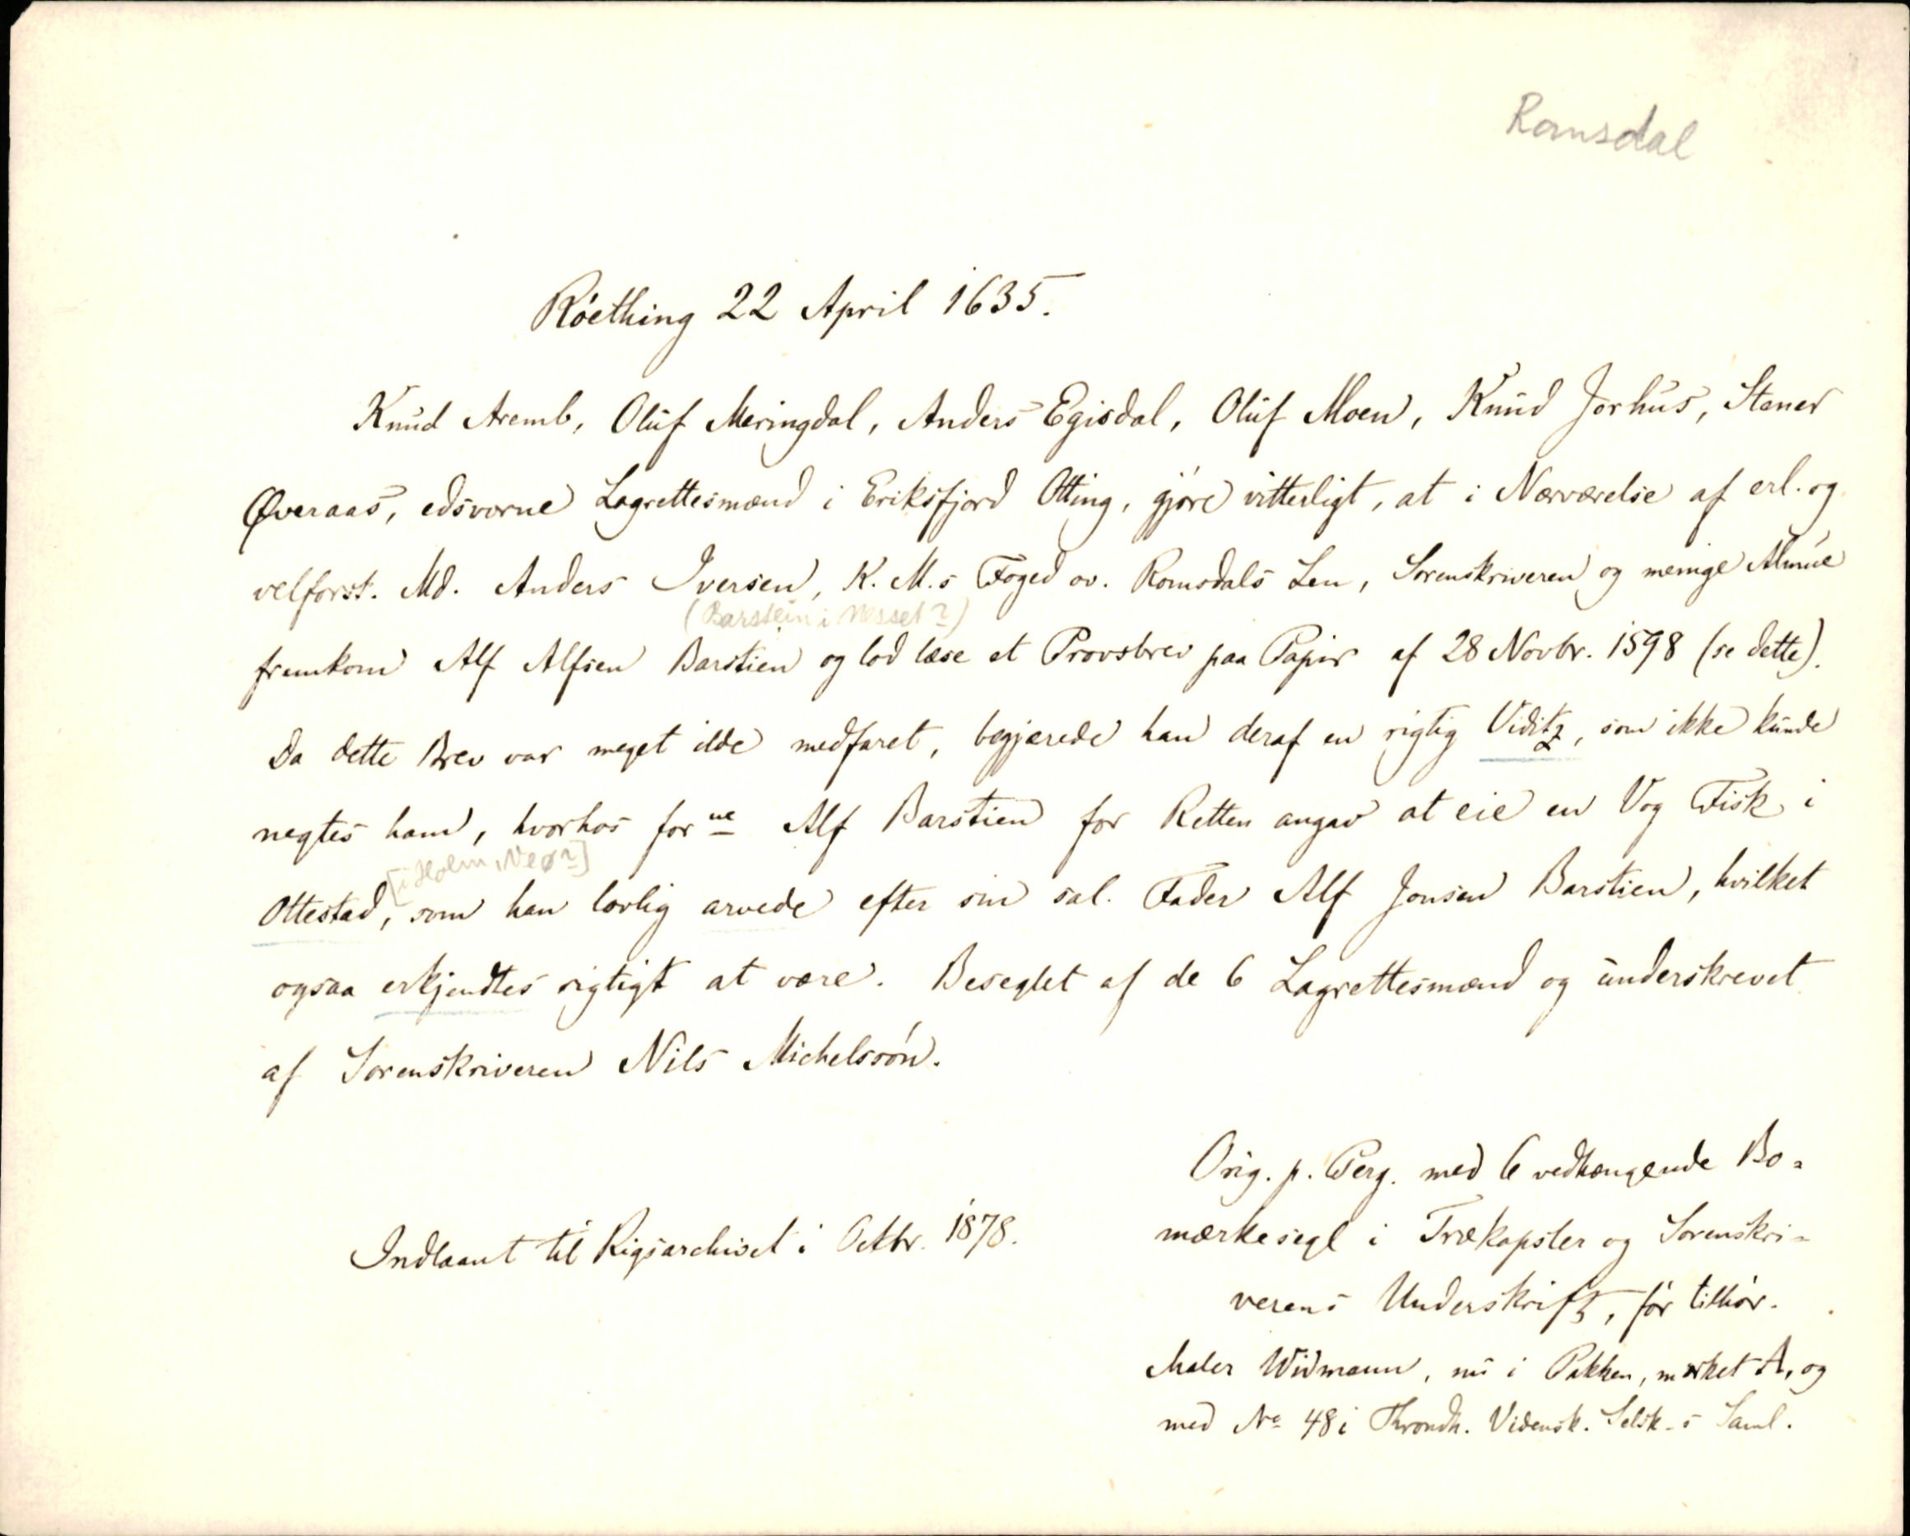 Romsdal
Röething 22 April 1635.
Knud Aremb, Oluf Meringdal, Anders Egisdal, Oluf Moen, Knud Jorhus, Stener
Øveraas, edsvorne Lagrettesmænd i Eriksfjord Otting, gjöre vitterligt, at i Nærværelse af erl. og
velforst. Md. Anders Iversen, K. M.s Foged ov. Romsdals Len, Sorenskriveren og menige Almue
(Barstein i Nesset?)
fremkom Alf Alfsen Barstien og lod læse et Provsbrev paa Papir af 28 Novbr. 1598 (se dette).
Da dette Brev var meget ilde medfaret, begjærede han deraf en rigtig Viditz, som ikke kunde
negtes ham, hvorhos forne Alf Barstien for Retten angav at eie en Vog Fisk i
[i Holm, Veø?]
Ottestad, som han lovlig arvede efter sin sal. Fader Alf Jonsen Barstien, hvilket
ogsaa erkjendtes rigtigt at være. Beseglet af de 6 Lagrettesmænd og underskrevet
af Sorenskriveren Nils Michelssön.
Orig. p. Perg. med 6 vedhængende Bo-
mærkesegl i Trækapsler og Sorenskri-
verens Underskrift, för tilhör.
Maler Widmann, nu i Pakken, mrket A, og
med No 48 i Throndh. Vidensk. Selsk-s Saml.
Indlaant til Rigsarchivet i Octbr. 1878.